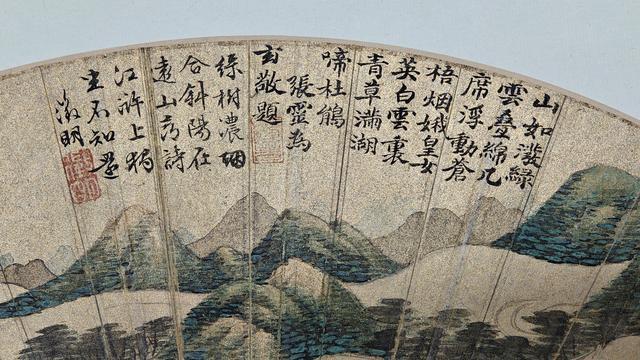 山如潑綠
雲疊綿几
席浮動蒼
梧烟娥皇女
英白雲裏
青草滿湖
啼杜鵑
張靈為
玄敬題
綠樹濃烟
合斜陽在
遠山詩
江滸上獨
坐不知還
徵明